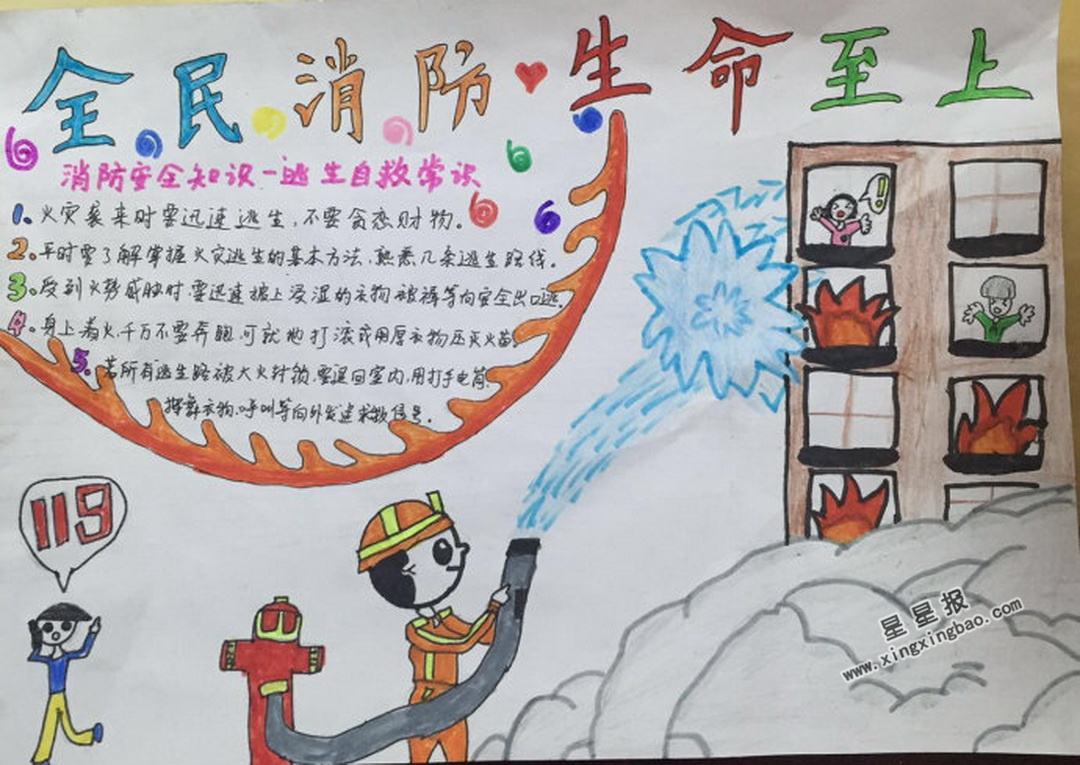 全民消防 生命至上
消防安全知识-逃生自救常识
1.火灾袭来时要迅速逃生,不要贪恋财物。
2.平时要了解掌握火灾逃生的基本方法,熟悉几条逃生路线。
3.受到火势威胁时,要迅速披上浸湿的衣物、被褥等向安全出口逃。
4.身上着火,千万不要奔跑,可就地打滚或用厚衣物压灭火苗。
5.若所有逃生路被大火封锁,要退回室内,用打手电筒、
挥舞衣物、呼叫等向外发送求救信号。
119
!
星星报
www.xingxingbao.com